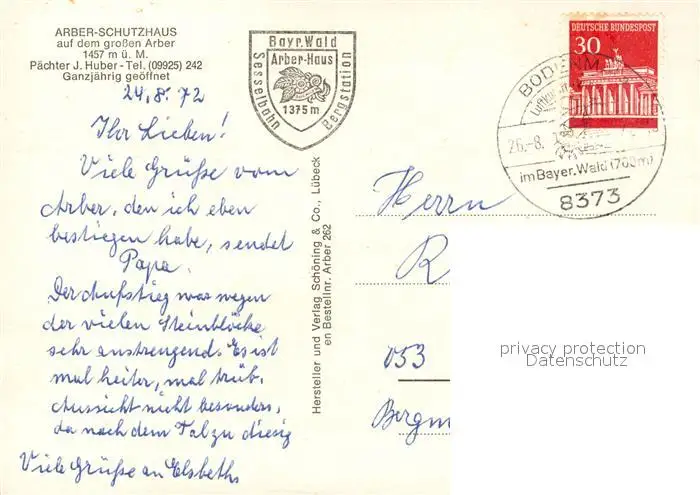 ARBER-SCHUTZHAUS
auf dem großen Arber
1457 m ü. M.
Pächter J. Huber - Tel. (09925) 242
Ganzjährig geöffnet
24.8.72
Ihr Lieben!
Viele Grüße vom
Arber, den ich eben
bestiegen habe, sendet
Papa.
Der Aufstieg war wegen
der vielen Steinblöcke
sehr anstrengend. Es ist
mal heiter, mal trüb.
Aussicht nicht besonders,
da nach dem Tal zu diesig
Viele Grüße an Elsbeths
Bayr. Wald
Arber-Haus
Sesselbahn
Bergstation
1375 m
Hersteller und Verlag Schöning & Co., Lübeck
en Bestellnr. Arber 262
DEUTSCHE BUNDESPOST
30
BODENM
Luftku
26.-8.
im Bayer. Wald (700m)
8373
Herrn
R
053
Bergm
privacy protection
Datenschutz